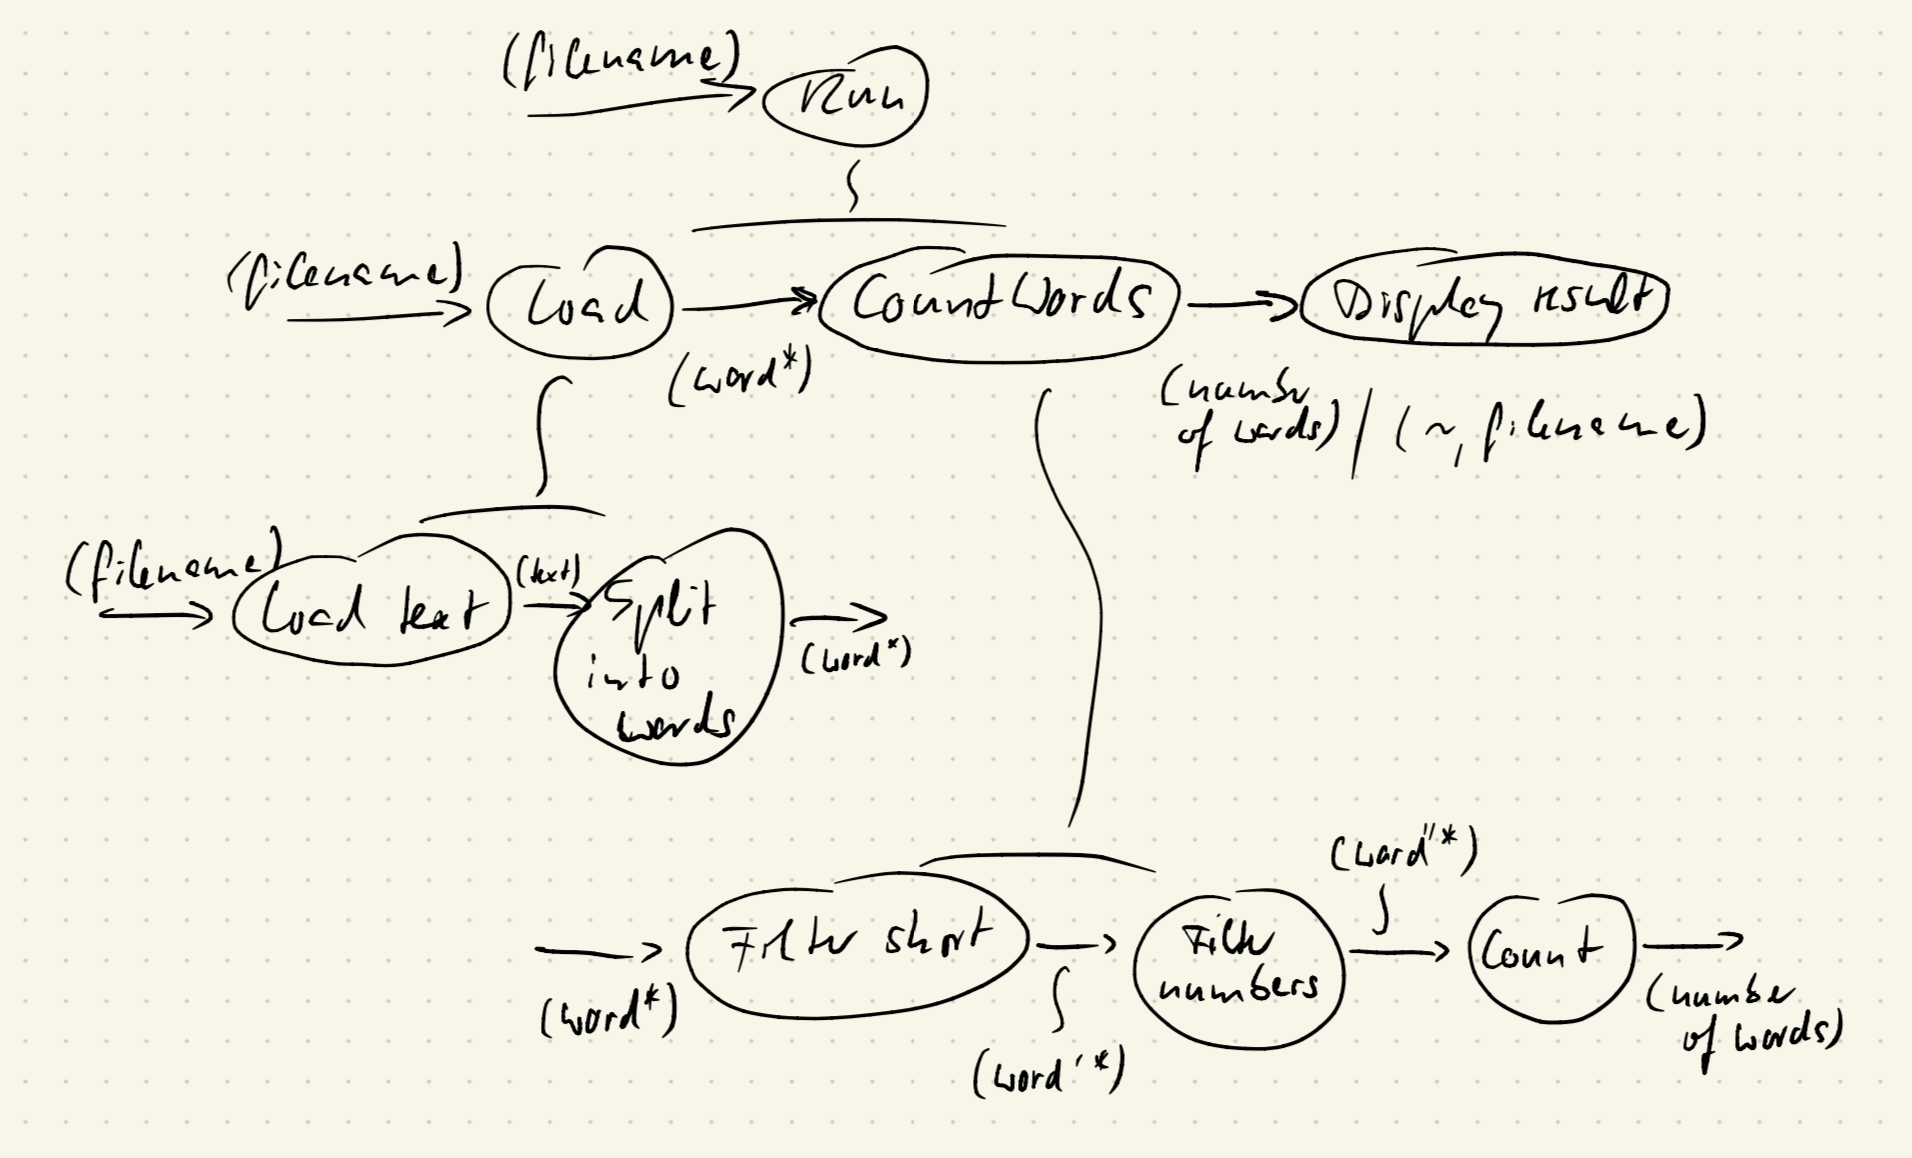 (filename)
Run
(filename)
Load
CountWords
Display result
(word*)
(number
of words) / (~, filename)
(filename)
Load text
(text)
Split
into
words
(word*)
(word"*)
Filter short
Filter
numbers
Count
(word*)
(word'*)
(number
of words)